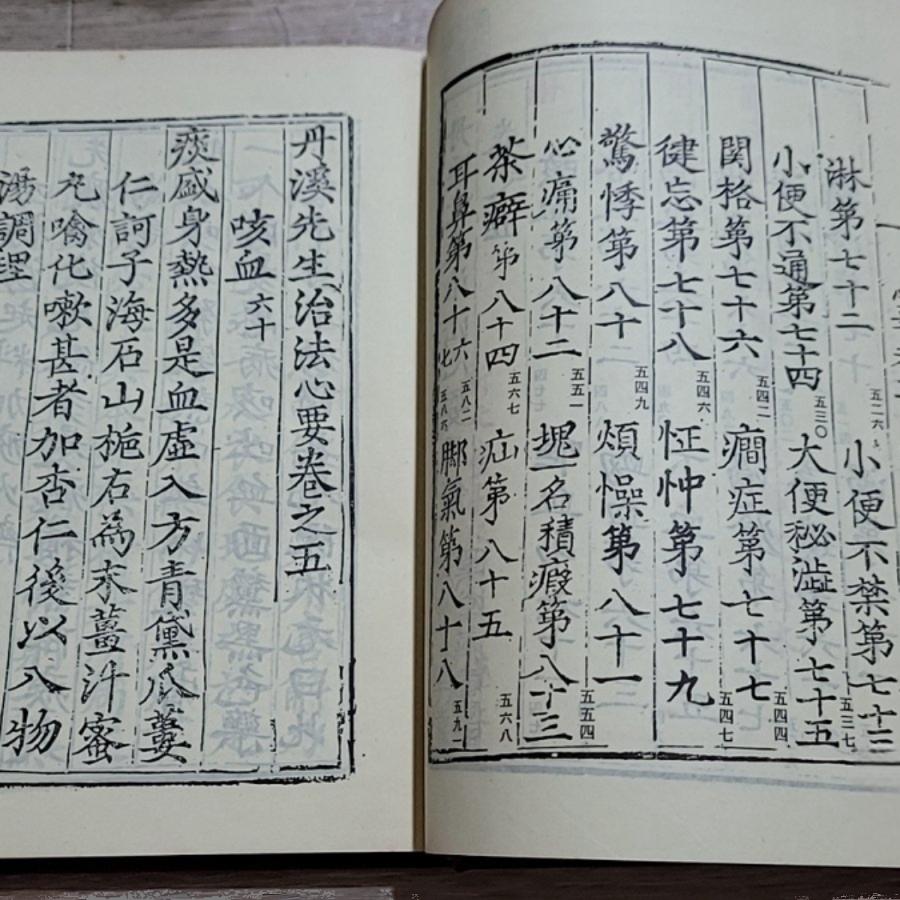 淋第七十二 五二六 小便不禁第七十三
小便不通第七十四 五三〇 大便秘澁第七十五 五三七
関格第七十六 五四二 癎症第七十七 五四四
徤忘第七十八 五四六 怔忡第七十九 五四七
驚悸第八十 五四九 煩懆第八十一
心痛第八十二 五五一 塊一名積瘕第八十三 五五四
茶癖第八十四 五六七 疝第八十五 五六八
耳鼻第八十六七 五八二 五八六 脚氣第八十八 五九一
丹溪先生治法心要卷之五
咳血六十
痰盛身熱多是血虛入方青黛瓜蔞
仁訶子海石山梔右為末薑汁蜜
丸噙化嗽甚者加杏仁後以八物
湯調理